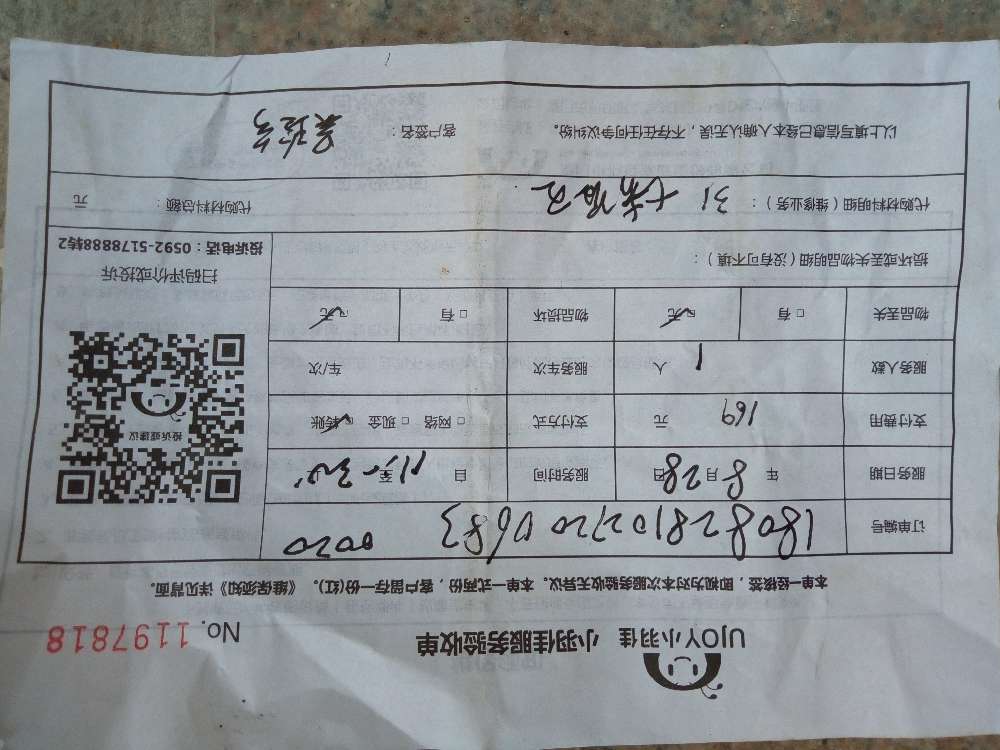 UJOY小羽佳 小羽佳服务验收单 No. 1197818
本单一经核签，即视为对本次服务验收无异议。本单一式两份，客户留存一份(红)。《维保须知》详见背面。
订单编号 180828102720 0683 0020
服务日期 年 8 月 28 日 服务时间 自 至
支付费用 169 元 支付方式 □ 网络 □ 现金 ☑ 转账
服务人数 1 人 服务车次 车/次
物品丢失 □ 有 ☑ 无 物品损坏 □ 有 ☑ 无
损坏或丢失物品明细（没有可不填）：
代购材料明细（维修业务）： 31 代购材料总额： 元
以上填写信息已经本人确认无误，不存在任何争议纠纷。 客户签名：
投诉或建议
扫码评价或投诉
投诉电话：0592-5178888转2